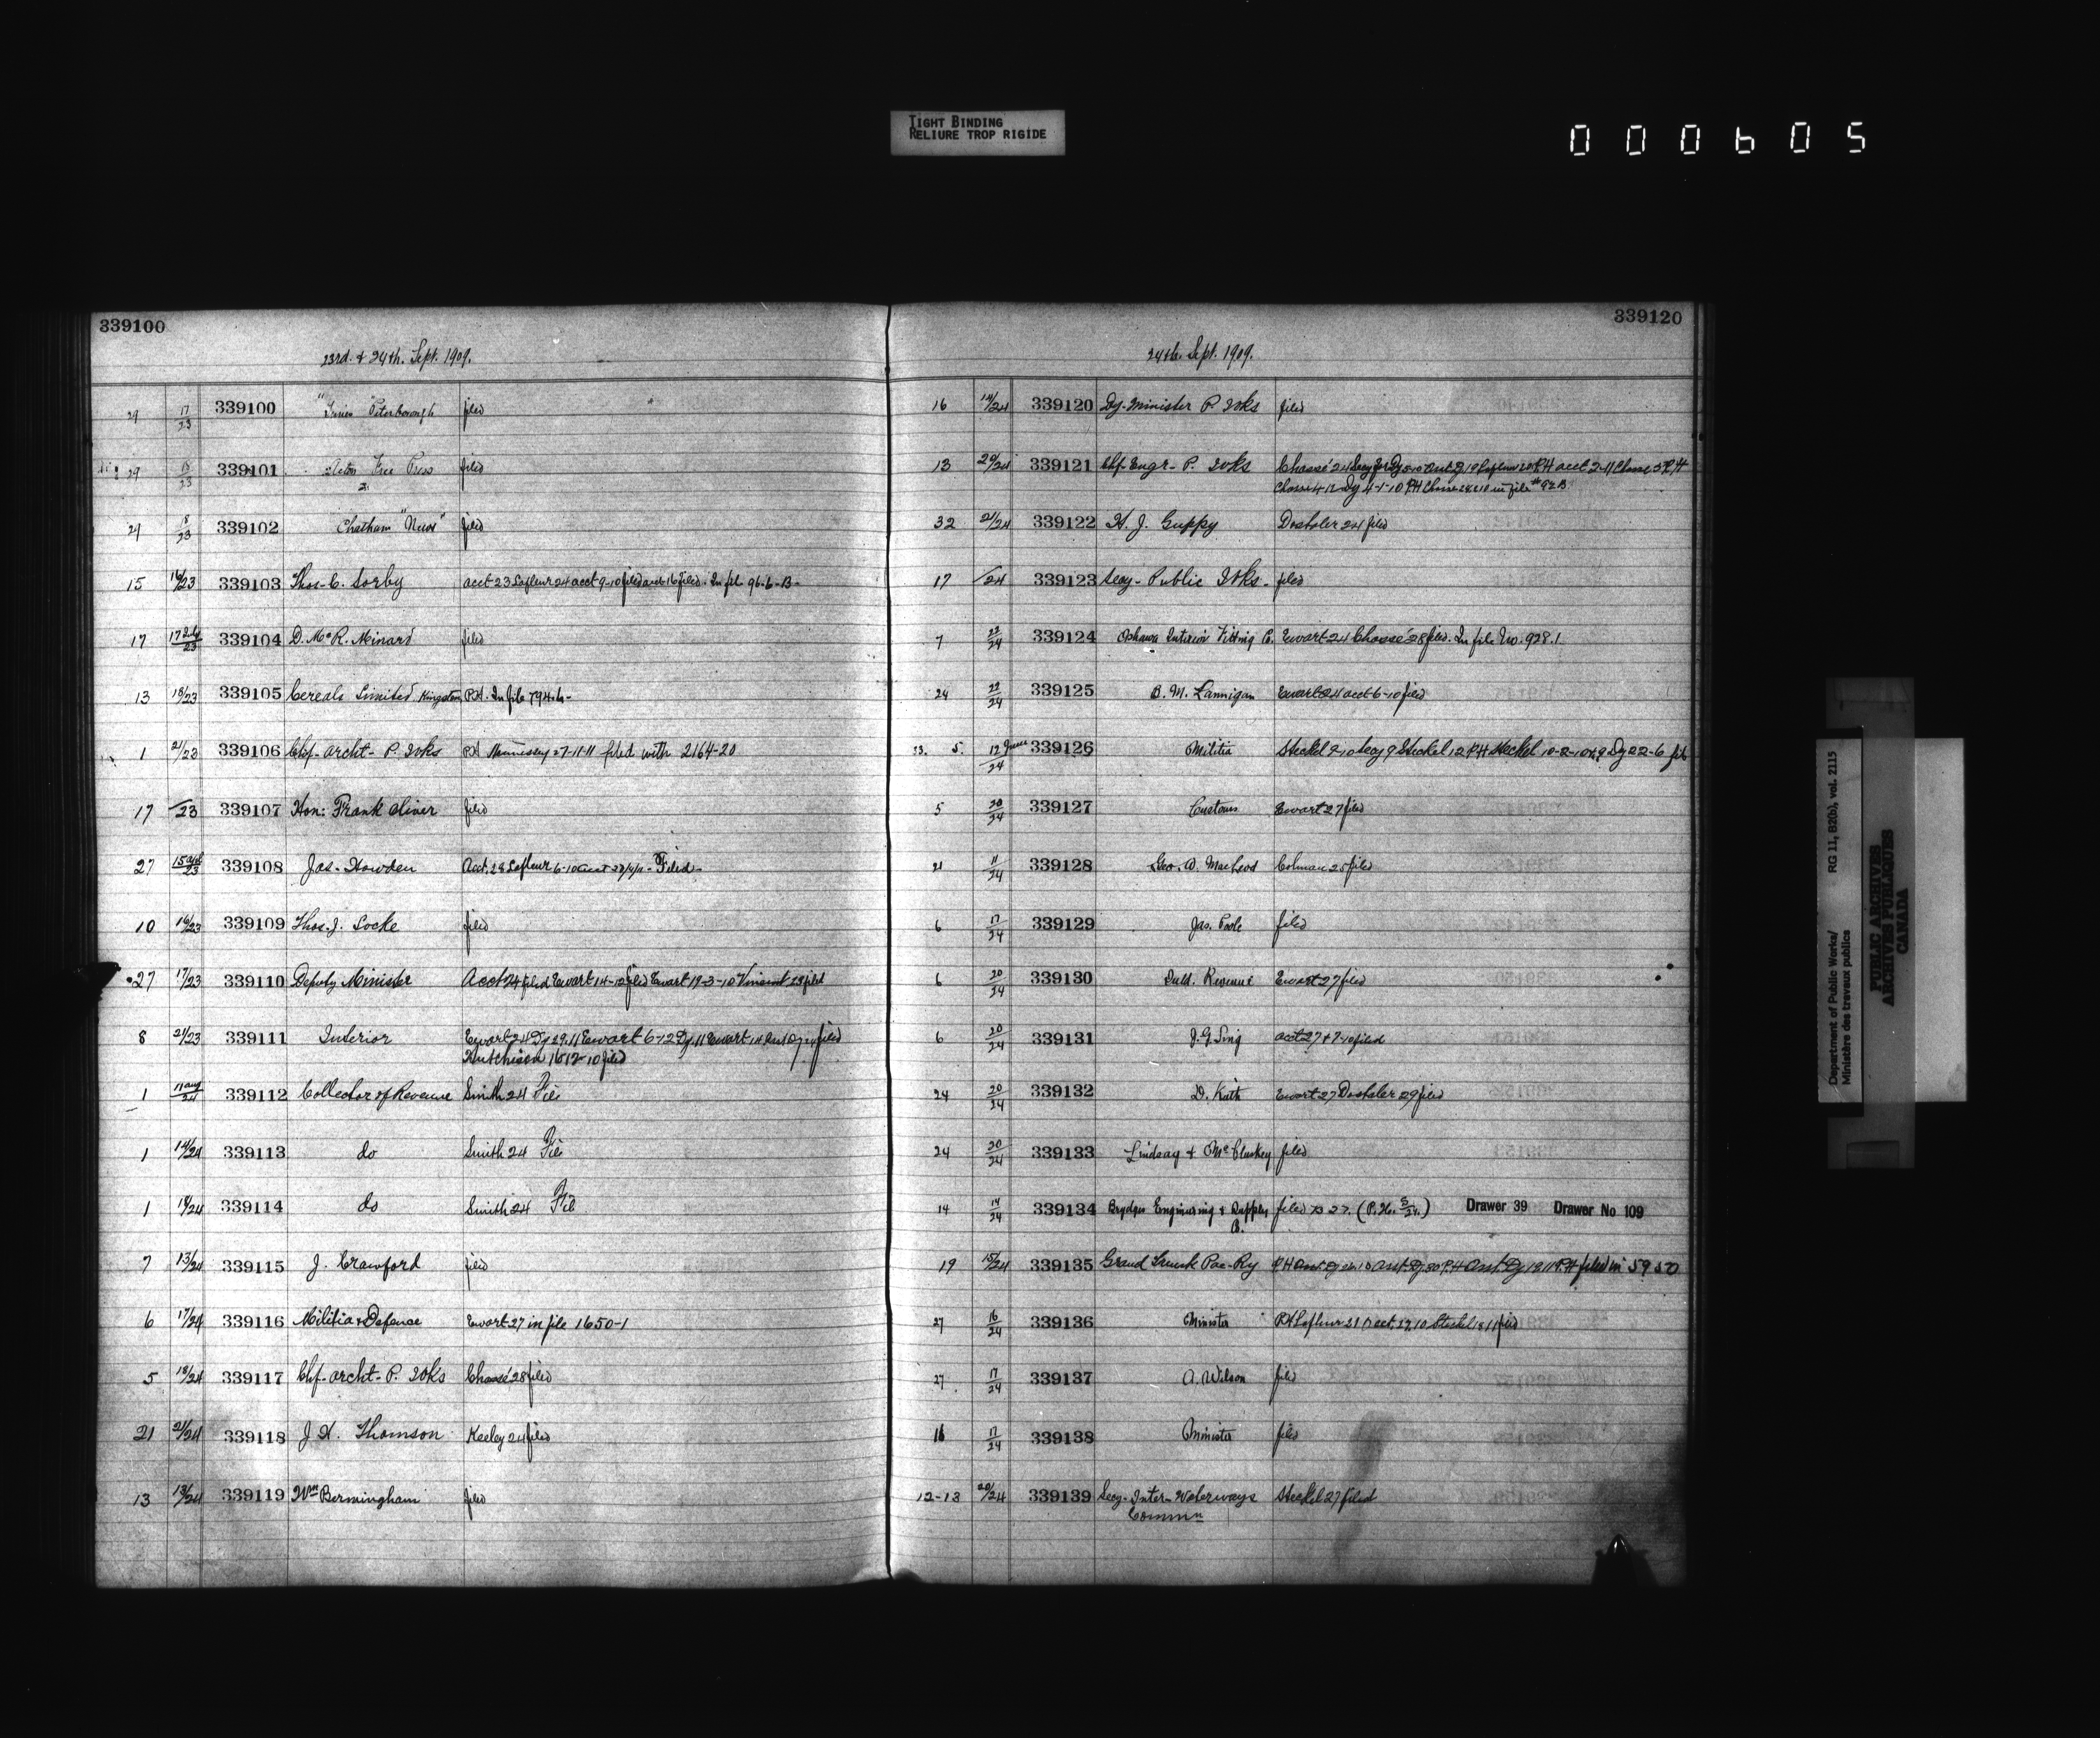 TIGHT BINDING
RELIURE TROP RIGIDE
000605
339100
23rd. & 24th. Sept. 1909.
29 17/23 339100 "Times" Peterborough filed
29 18/23 339101 Acton Free Press filed
29 8/23 339102 Chatham "News" filed
15 16/23 339103 Thos. C. Sorby acct 23 Lafleur 24 acct 9-10 filed acct 16 filed. In file 96-6-B-
17 17 July/23 339104 D. McR. Minard filed
13 18/23 339105 Cereals Limited Kingston P.H. In file 794.6-
1 21/23 339106 Chf. archt- P. Wks P.H. 27-11-11 filed with 2164-20
17 /23 339107 Hon: Frank Oliver filed
27 23 339108 Jas. Howden Acct. 28 Lafleur 6-10 acct Filed-
10 16/23 339109 Thos. J. Locke filed
27 17/23 339110 Deputy Minister Acct 24 filed Ewart 14-12 filed Ewart 19-3-10 Vincent 23 filed
8 21/23 339111 Interior Ewart 24 Dy 29.11 Ewart 6-12 Dy. 11 Ewart 14 filed
Hutchison 16 12-10 filed
1 11 aug/24 339112 Collector of Revenue Smith 24 Fil
1 14/24 339113 do Smith 24 Fil
1 18/24 339114 do Smith 24 Fil
7 13/24 339115 J. Crawford filed
6 17/24 339116 Militia & Defence Ewart 27 in file 1650-1
5 18/24 339117 Chf. archt- P. Wks Chassé 28 filed
21 21/24 339118 J. H. Thomson Keeley 24 filed
13 13/24 339119 Wm Bermingham filed
339120
24th. Sept. 1909.
16 14/24 339120 Dy. Minister P. Wks filed
13 20/24 339121 Chf. Engr- P. Wks Chassé 24 Lafleur 20 P.H acct 2-11 Chasse 3 P.H
Chasse 4-12 Dy 4-1-10 P.H Chasse in file #92 B
32 21/24 339122 H. J. Guppy Dostaler 24 filed
17 /24 339123 Secy- Public Wks- filed
7 22/24 339124 Oshawa Interior Fitting Co. Ewart 24 Chassé 28 filed. In file No. 928.1
24 22/24 339125 B. M. Lannigan Ewart 24 acct 6-10 filed
5. 12 June/24 339126 Militia Steckel 9-10 Secy 9 Steckel 12 P.H Steckel 10-2-10 Dy 22-6 fil
5 20/24 339127 Customs Ewart 27 filed
21 11/24 339128 Geo. D. MacLeod Colman 25 filed
6 17/24 339129 Jas. Poole filed
6 20/24 339130 Inld. Revenue Ewart 27 filed
6 20/24 339131 J. G. Sing acct 27 & 7-10 filed
24 20/24 339132 D. Keith Ewart 27 Dostaler 29 filed
24 20/24 339133 Lindsay & McCluskey filed
14 14/24 339134 Brydges Engineering & Supply filed B 27. (P.H. 5/24.) Drawer 39 Drawer No 109
Co.
19 15/24 339135 Grand Trunk Pac-Ry P.H Asst. Dy Asst. Dy 30 P.H Asst. Dy 12 11 P.H filed in 5950
27 16/24 339136 Minister P.H Lafleur 21 acct. 29.10 Steckel 18 11 filed
27 17/24 339137 A. Wilson filed
16 17/24 339138 Minister filed
12-13 20/24 339139 Secy- Inter- Waterways Steckel 27 filed
Commn
Department of Public Works/ RG 11, B2(b), vol. 2115
Ministère des travaux publics
PUBLIC ARCHIVES
ARCHIVES PUBLIQUES
CANADA